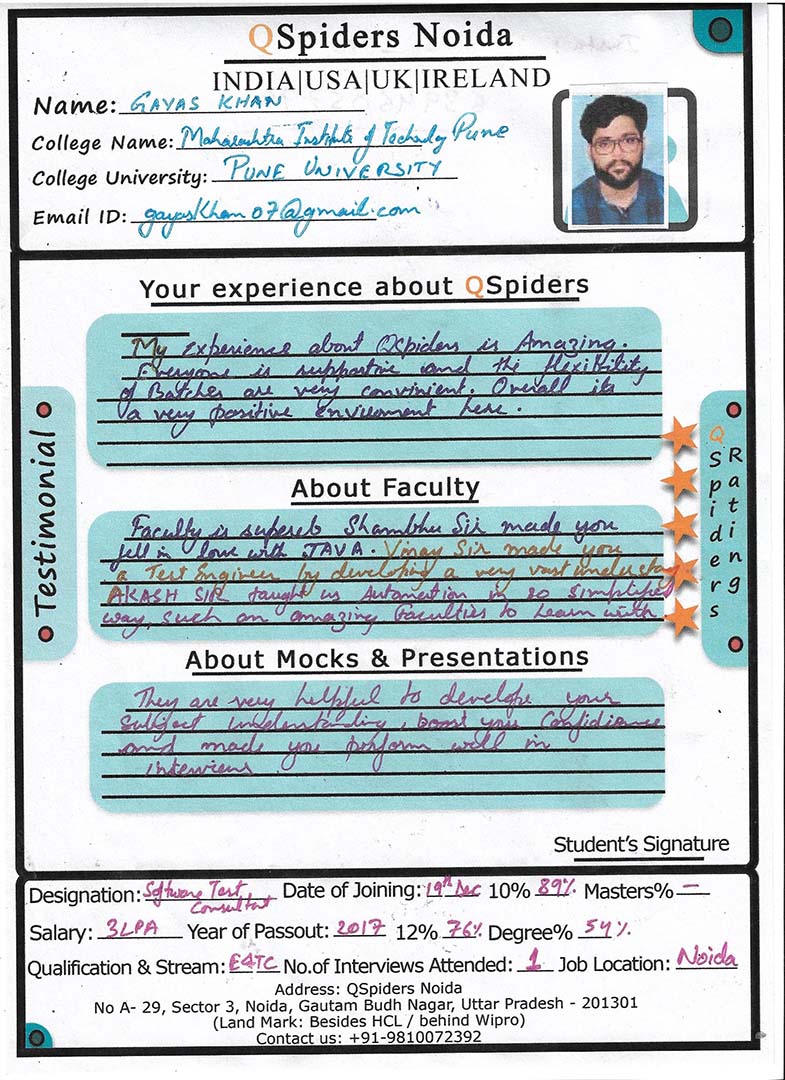 QSpiders Noida
INDIA|USA|UK|IRELAND
Name: GAYAS KHAN
College Name: Maharashtra Institute of Technolgy Pune
College University: PUNE UNIVERSITY
Email ID: gayaskhan07@gmail.com
Your experience about QSpiders
My experience about QSpiders is Amazing.
Everyone is supportive and the flexibility
of Batches are very convinient. Overall its
a very positive enviroment here.
Testimonial
QSpiders
Ratings
About Faculty
Faculty is superb Shambhu Sir made you
fell in love with JAVA. Vinay Sir made you
a Test Engineer by developing a very vast
AKASH SIR taught us Automation in so simplified
way, such an amazing Faculties to Learn with
About Mocks & Presentations
They are very helpful to develope your
Subject understanding, boost your Confidience
and made you perform well in
interviews.
Student's Signature
Designation: Software Test Consultant Date of Joining: 19th Dec 10% 89% Masters% —
Salary: 3LPA Year of Passout: 2017 12% 76% Degree% 54%
Qualification & Stream: E&TC No.of Interviews Attended: 1 Job Location: Noida
Address: QSpiders Noida
No A- 29, Sector 3, Noida, Gautam Budh Nagar, Uttar Pradesh - 201301
(Land Mark: Besides HCL / behind Wipro)
Contact us: +91-9810072392